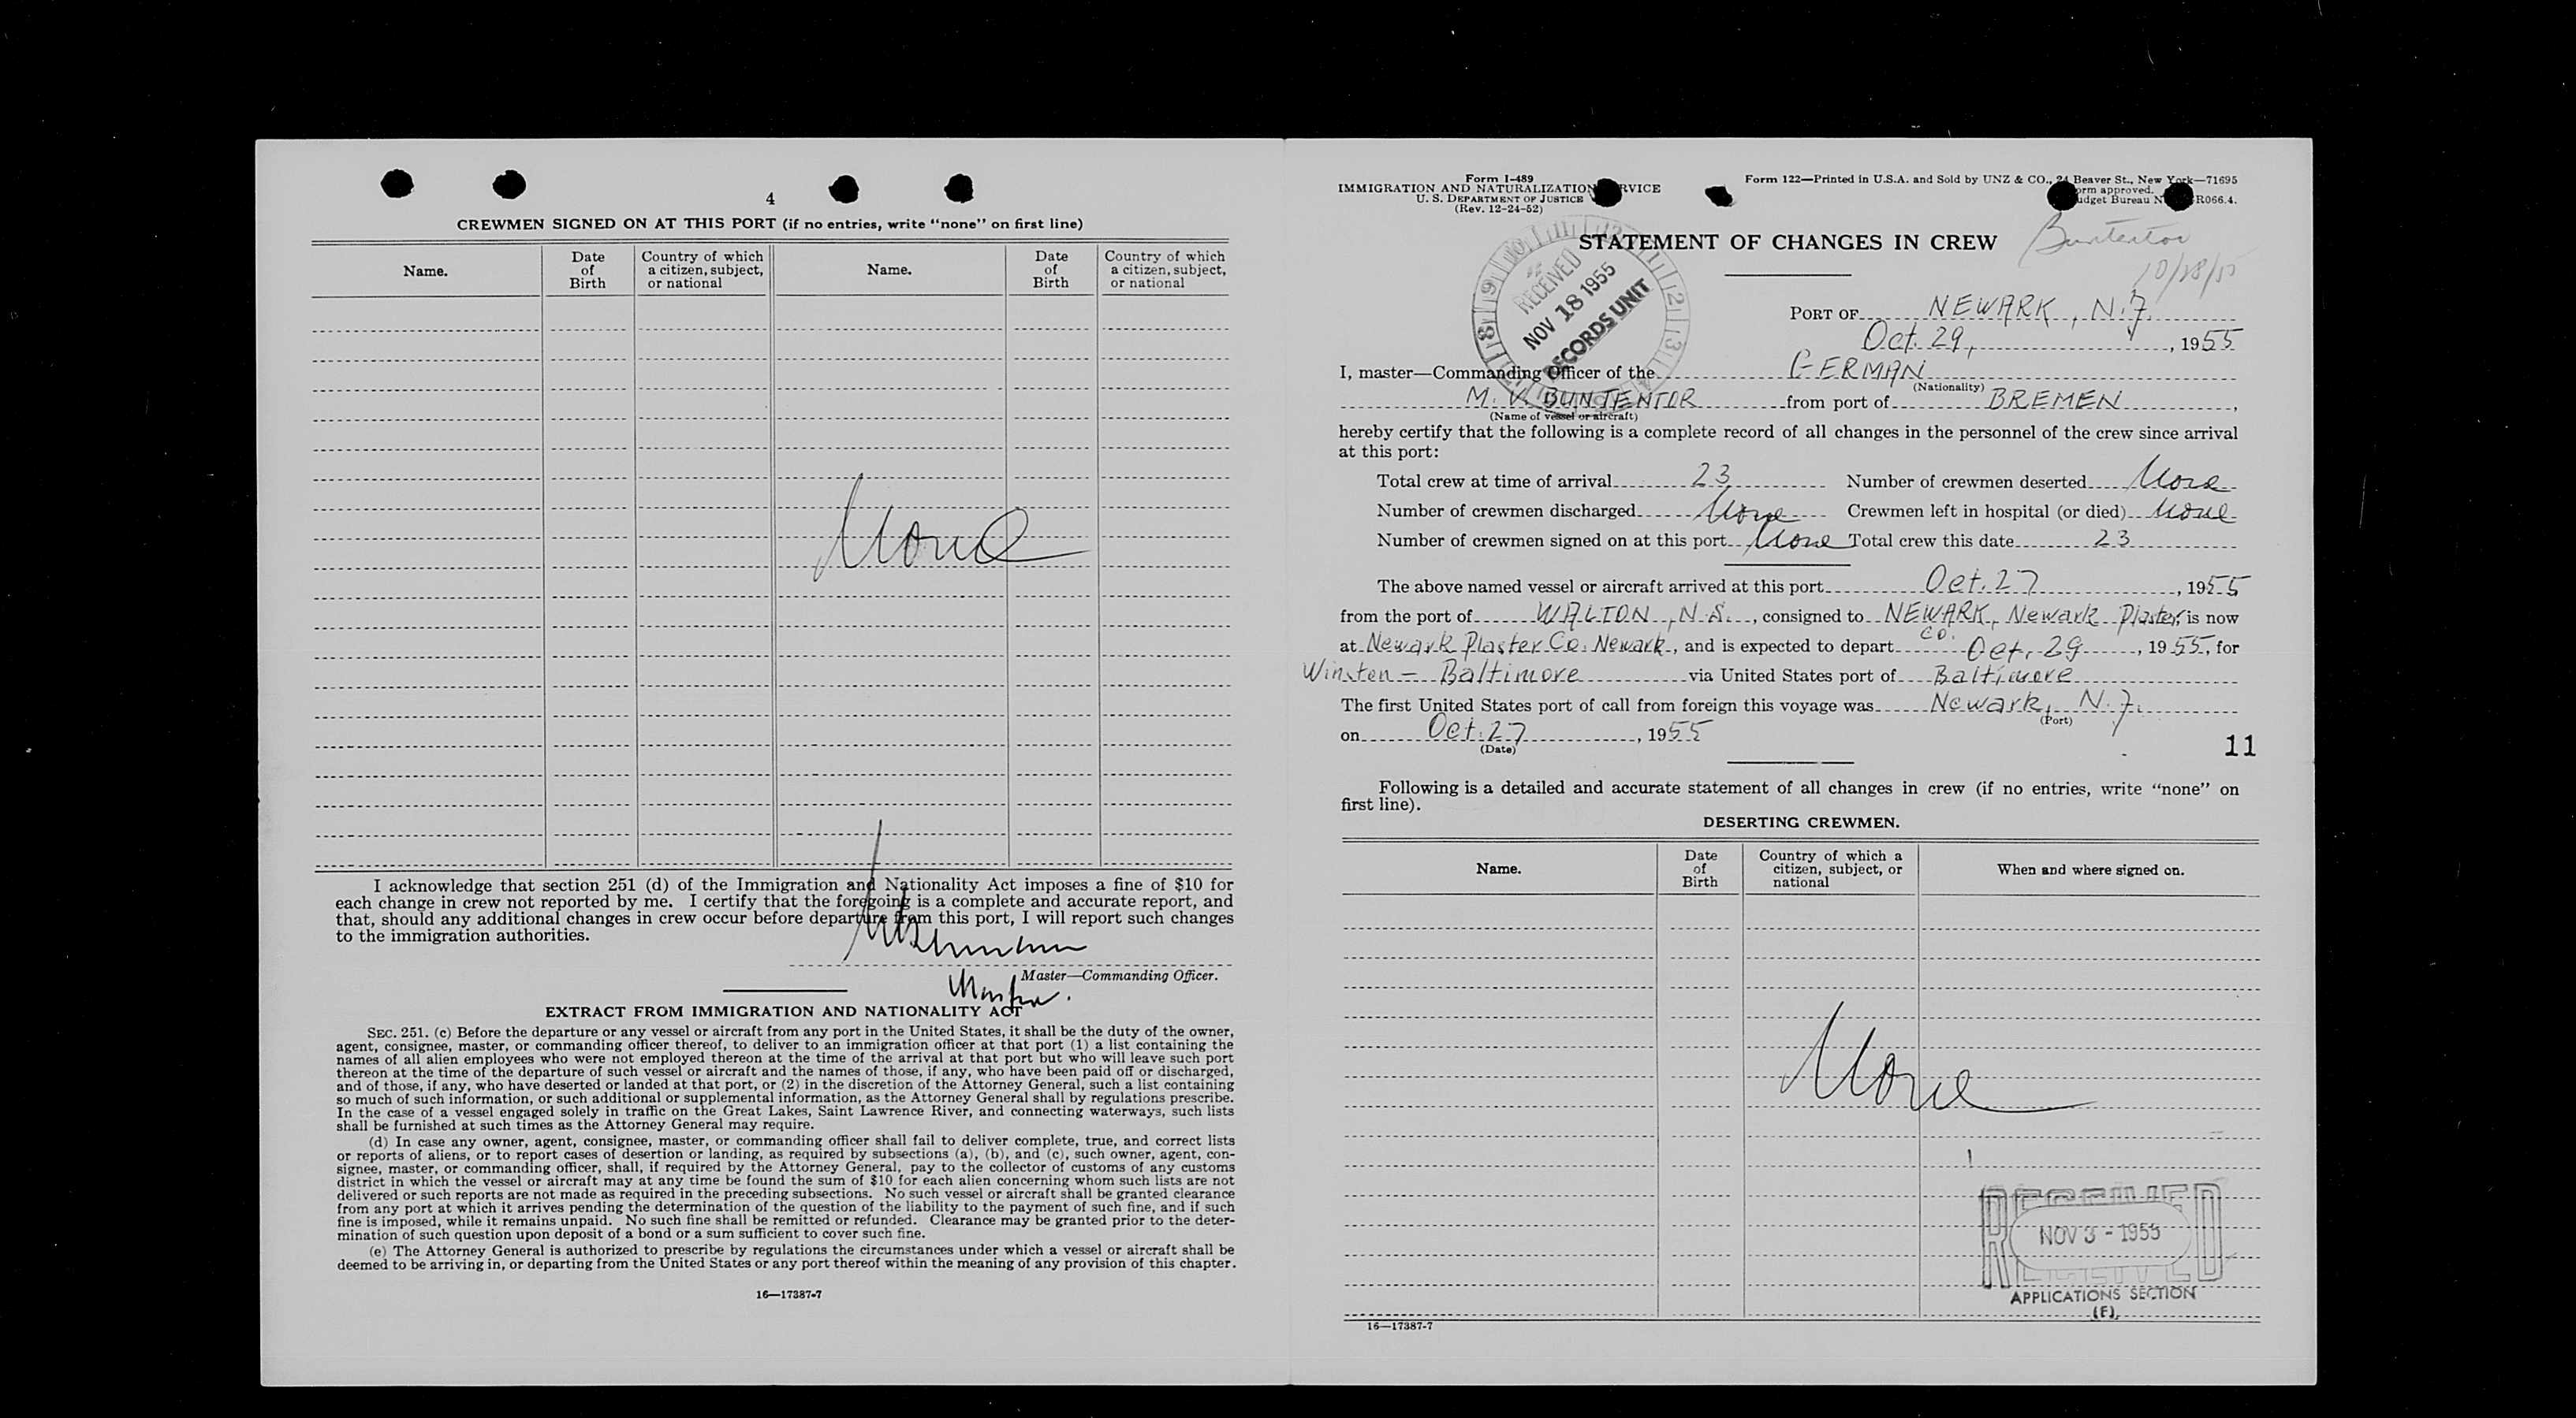 4
CREWMEN SIGNED ON AT THIS PORT (if no entries, write "none" on first line)
Name. Date of Birth Country of which a citizen, subject, or national Name. Date of Birth Country of which a citizen, subject, or national
None
I acknowledge that section 251 (d) of the Immigration and Nationality Act imposes a fine of $10 for
each change in crew not reported by me. I certify that the foregoing is a complete and accurate report, and
that, should any additional changes in crew occur before departure from this port, I will report such changes
to the immigration authorities.
Master—Commanding Officer.
Master.
EXTRACT FROM IMMIGRATION AND NATIONALITY ACT
SEC. 251. (c) Before the departure or any vessel or aircraft from any port in the United States, it shall be the duty of the owner,
agent, consignee, master, or commanding officer thereof, to deliver to an immigration officer at that port (1) a list containing the
names of all alien employees who were not employed thereon at the time of the arrival at that port but who will leave such port
thereon at the time of the departure of such vessel or aircraft and the names of those, if any, who have been paid off or discharged,
and of those, if any, who have deserted or landed at that port, or (2) in the discretion of the Attorney General, such a list containing
so much of such information, or such additional or supplemental information, as the Attorney General shall by regulations prescribe.
In the case of a vessel engaged solely in traffic on the Great Lakes, Saint Lawrence River, and connecting waterways, such lists
shall be furnished at such times as the Attorney General may require.
(d) In case any owner, agent, consignee, master, or commanding officer shall fail to deliver complete, true, and correct lists
or reports of aliens, or to report cases of desertion or landing, as required by subsections (a), (b), and (c), such owner, agent, con-
signee, master, or commanding officer, shall, if required by the Attorney General, pay to the collector of customs of any customs
district in which the vessel or aircraft may at any time be found the sum of $10 for each alien concerning whom such lists are not
delivered or such reports are not made as required in the preceding subsections. No such vessel or aircraft shall be granted clearance
from any port at which it arrives pending the determination of the question of the liability to the payment of such fine, and if such
fine is imposed, while it remains unpaid. No such fine shall be remitted or refunded. Clearance may be granted prior to the deter-
mination of such question upon deposit of a bond or a sum sufficient to cover such fine.
(e) The Attorney General is authorized to prescribe by regulations the circumstances under which a vessel or aircraft shall be
deemed to be arriving in, or departing from the United States or any port thereof within the meaning of any provision of this chapter.
16—17387-7
Form I-489
IMMIGRATION AND NATURALIZATION RVICE
U. S. DEPARTMENT OF JUSTICE
(Rev. 12-24-52)
Form 122—Printed in U.S.A. and Sold by UNZ & CO., 24 Beaver St., New York—71695
orm approved.
udget Bureau N R066.4.
STATEMENT OF CHANGES IN CREW
Buntentor
10/28/55
RECEIVED
NOV 18 1955
RECORDS UNIT
PORT OF NEWARK, N.J.
Oct. 29, , 1955
I, master—Commanding Officer of the GERMAN
(Nationality)
M.V. BUNTENTOR from port of BREMEN ,
(Name of vessel or aircraft)
hereby certify that the following is a complete record of all changes in the personnel of the crew since arrival
at this port:
Total crew at time of arrival 23 Number of crewmen deserted None
Number of crewmen discharged None Crewmen left in hospital (or died) None
Number of crewmen signed on at this port None Total crew this date 23
The above named vessel or aircraft arrived at this port Oct. 27 , 1955
from the port of WALTON, N.S. , consigned to NEWARK, Newark Plaster Co. is now
at Newark Plaster Co. Newark , and is expected to depart Oct. 29 , 1955, for
Winston - Baltimore via United States port of Baltimore
The first United States port of call from foreign this voyage was Newark, N.J.
(Port)
on Oct. 27 , 1955
(Date)
11
Following is a detailed and accurate statement of all changes in crew (if no entries, write "none" on
first line).
DESERTING CREWMEN.
Name. Date of Birth Country of which a citizen, subject, or national When and where signed on.
None
RECEIVED
NOV 3 - 1955
RECEIVED
APPLICATIONS SECTION
(F)
16—17387-7